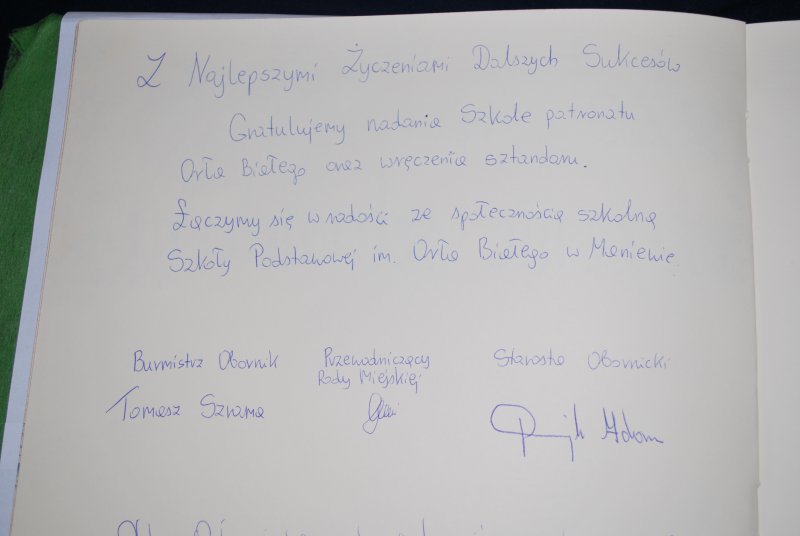 Z Najlepszymi Życzeniami Dalszych Sukcesów
Gratulujemy nadania Szkole patronatu
Orła Białego oraz wręczenia sztandaru.
Łączymy się w radości ze społecznością szkolną
Szkoły Podstawowej im. Orła Białego w Maniewie
Burmistrz Obornik
Tomasz Szrama
Przewodniczący
Rady Miejskiej
Starosta Obornicki
Adam